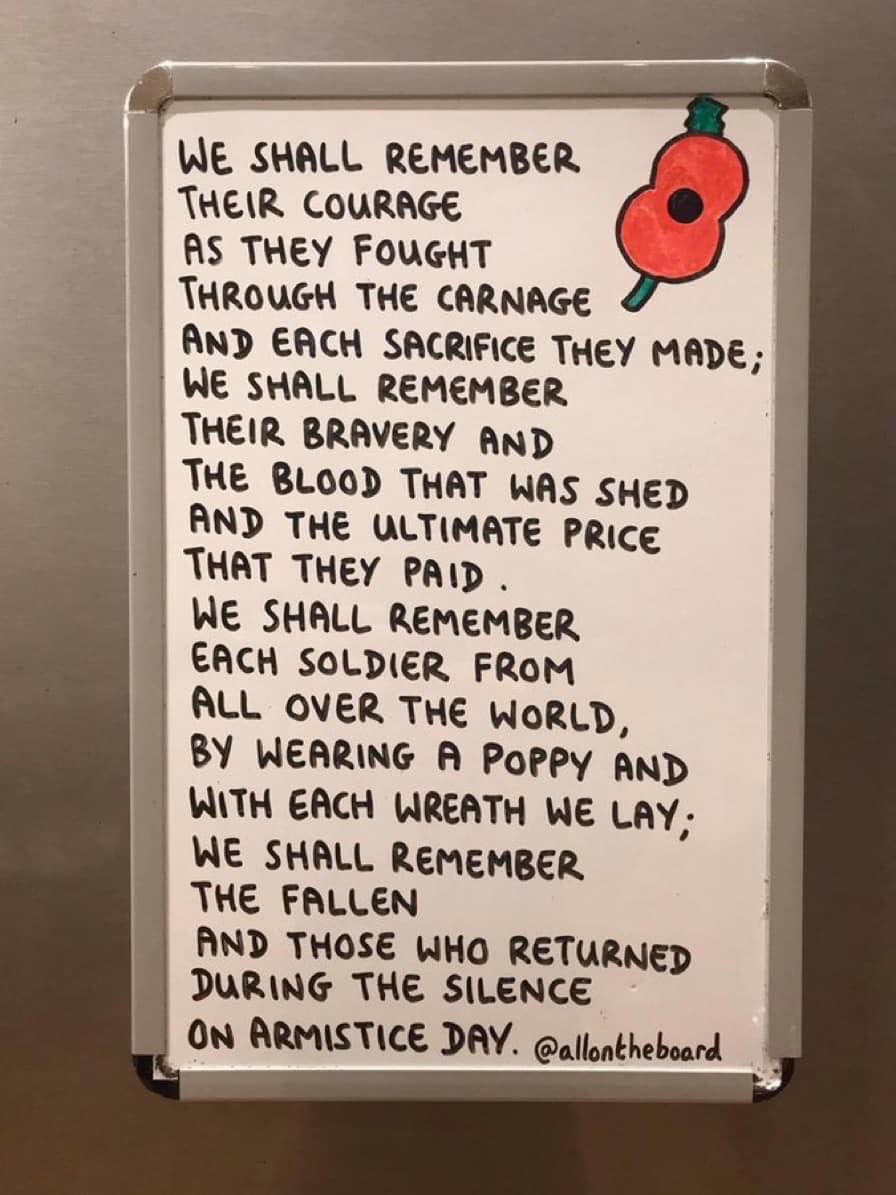 WE SHALL REMEMBER
THEIR COURAGE
AS THEY FOUGHT
THROUGH THE CARNAGE
AND EACH SACRIFICE THEY MADE;
WE SHALL REMEMBER
THEIR BRAVERY AND
THE BLOOD THAT WAS SHED
AND THE ULTIMATE PRICE
THAT THEY PAID.
WE SHALL REMEMBER
EACH SOLDIER FROM
ALL OVER THE WORLD,
BY WEARING A POPPY AND
WITH EACH WREATH WE LAY;
WE SHALL REMEMBER
THE FALLEN
AND THOSE WHO RETURNED
DURING THE SILENCE
ON ARMISTICE DAY. @allontheboard